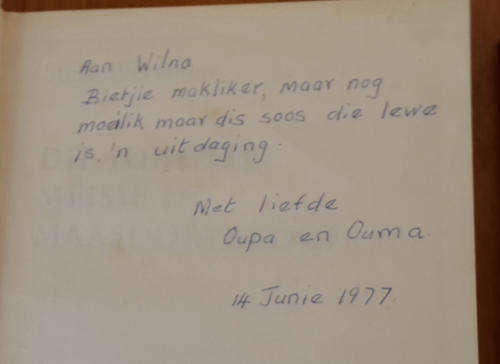 Aan Wilna
Bietjie makliker, maar nog
moeilik maar dis soos die lewe
is, 'n uitdaging.
Met liefde
Oupa en Ouma.
14 Junie 1977.